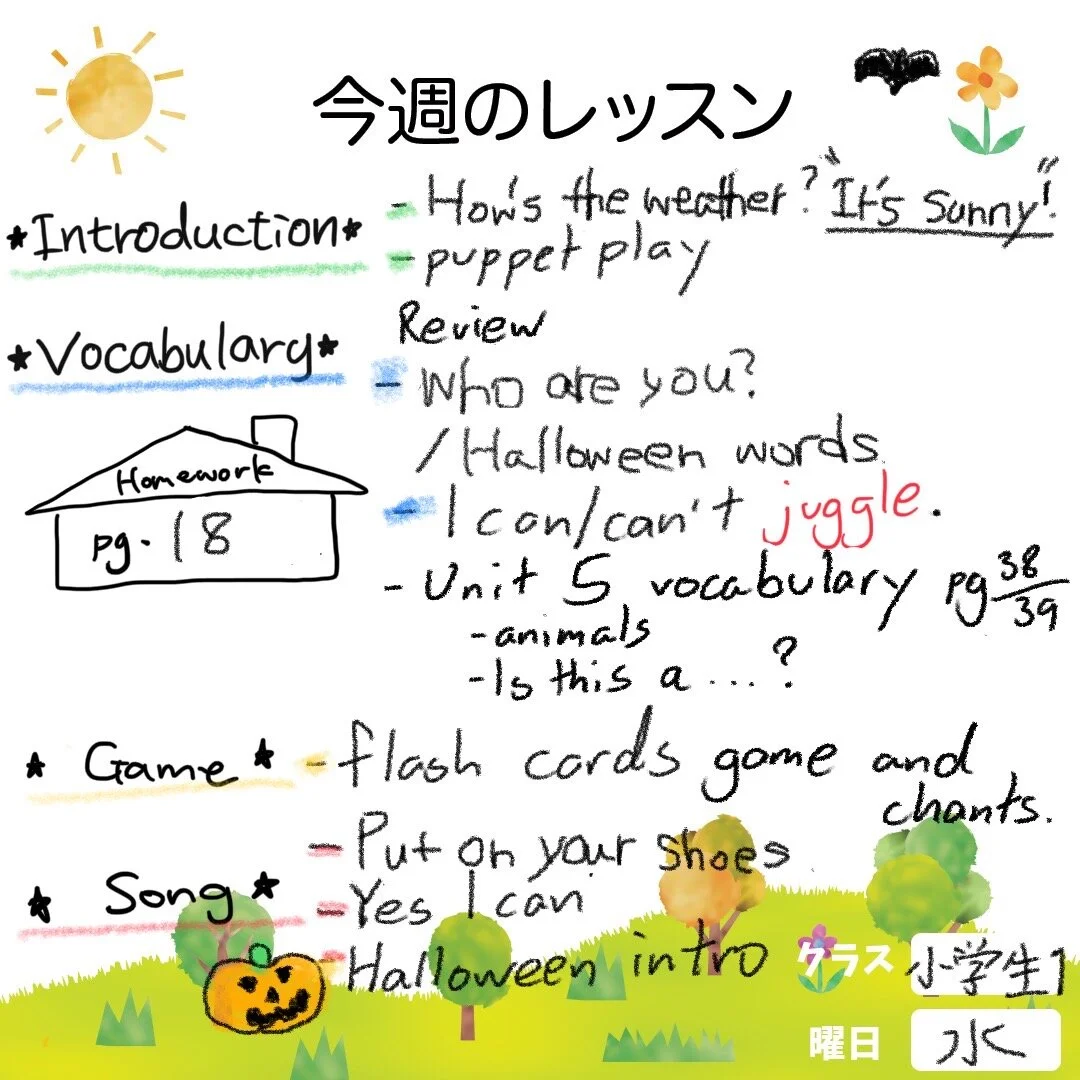 今週のレッスン
*Introduction*
- How's the weather? "It's Sunny"!
- puppet play
*Vocabulary*
Review
- Who are you?
/Halloween words
- I can/can't juggle.
- Unit 5 vocabulary pg 38/39
- animals
- Is this a ...?
Homework
pg. 18
* Game *
- flash cards game and
chants.
* Song *
- Put on your shoes
- Yes I can
- Halloween intro
クラス 小学生1
曜日 水